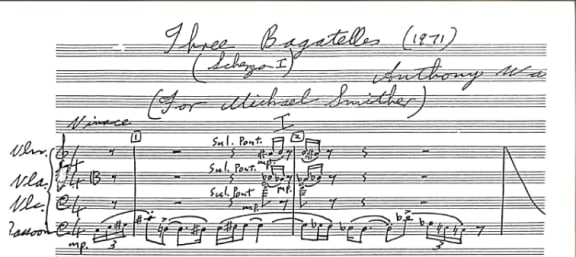 Three Bagatelles (1971)
(Scherzo I)
Anthony Wa
(For Michael Smither)
I
Vivace
1
2
Sul. Pont.
mp.
Vln.
Sul. Pont.
mp.
Vla.
Sul Pont
mp.
Vlc.
Bassoon
mp.
3
3